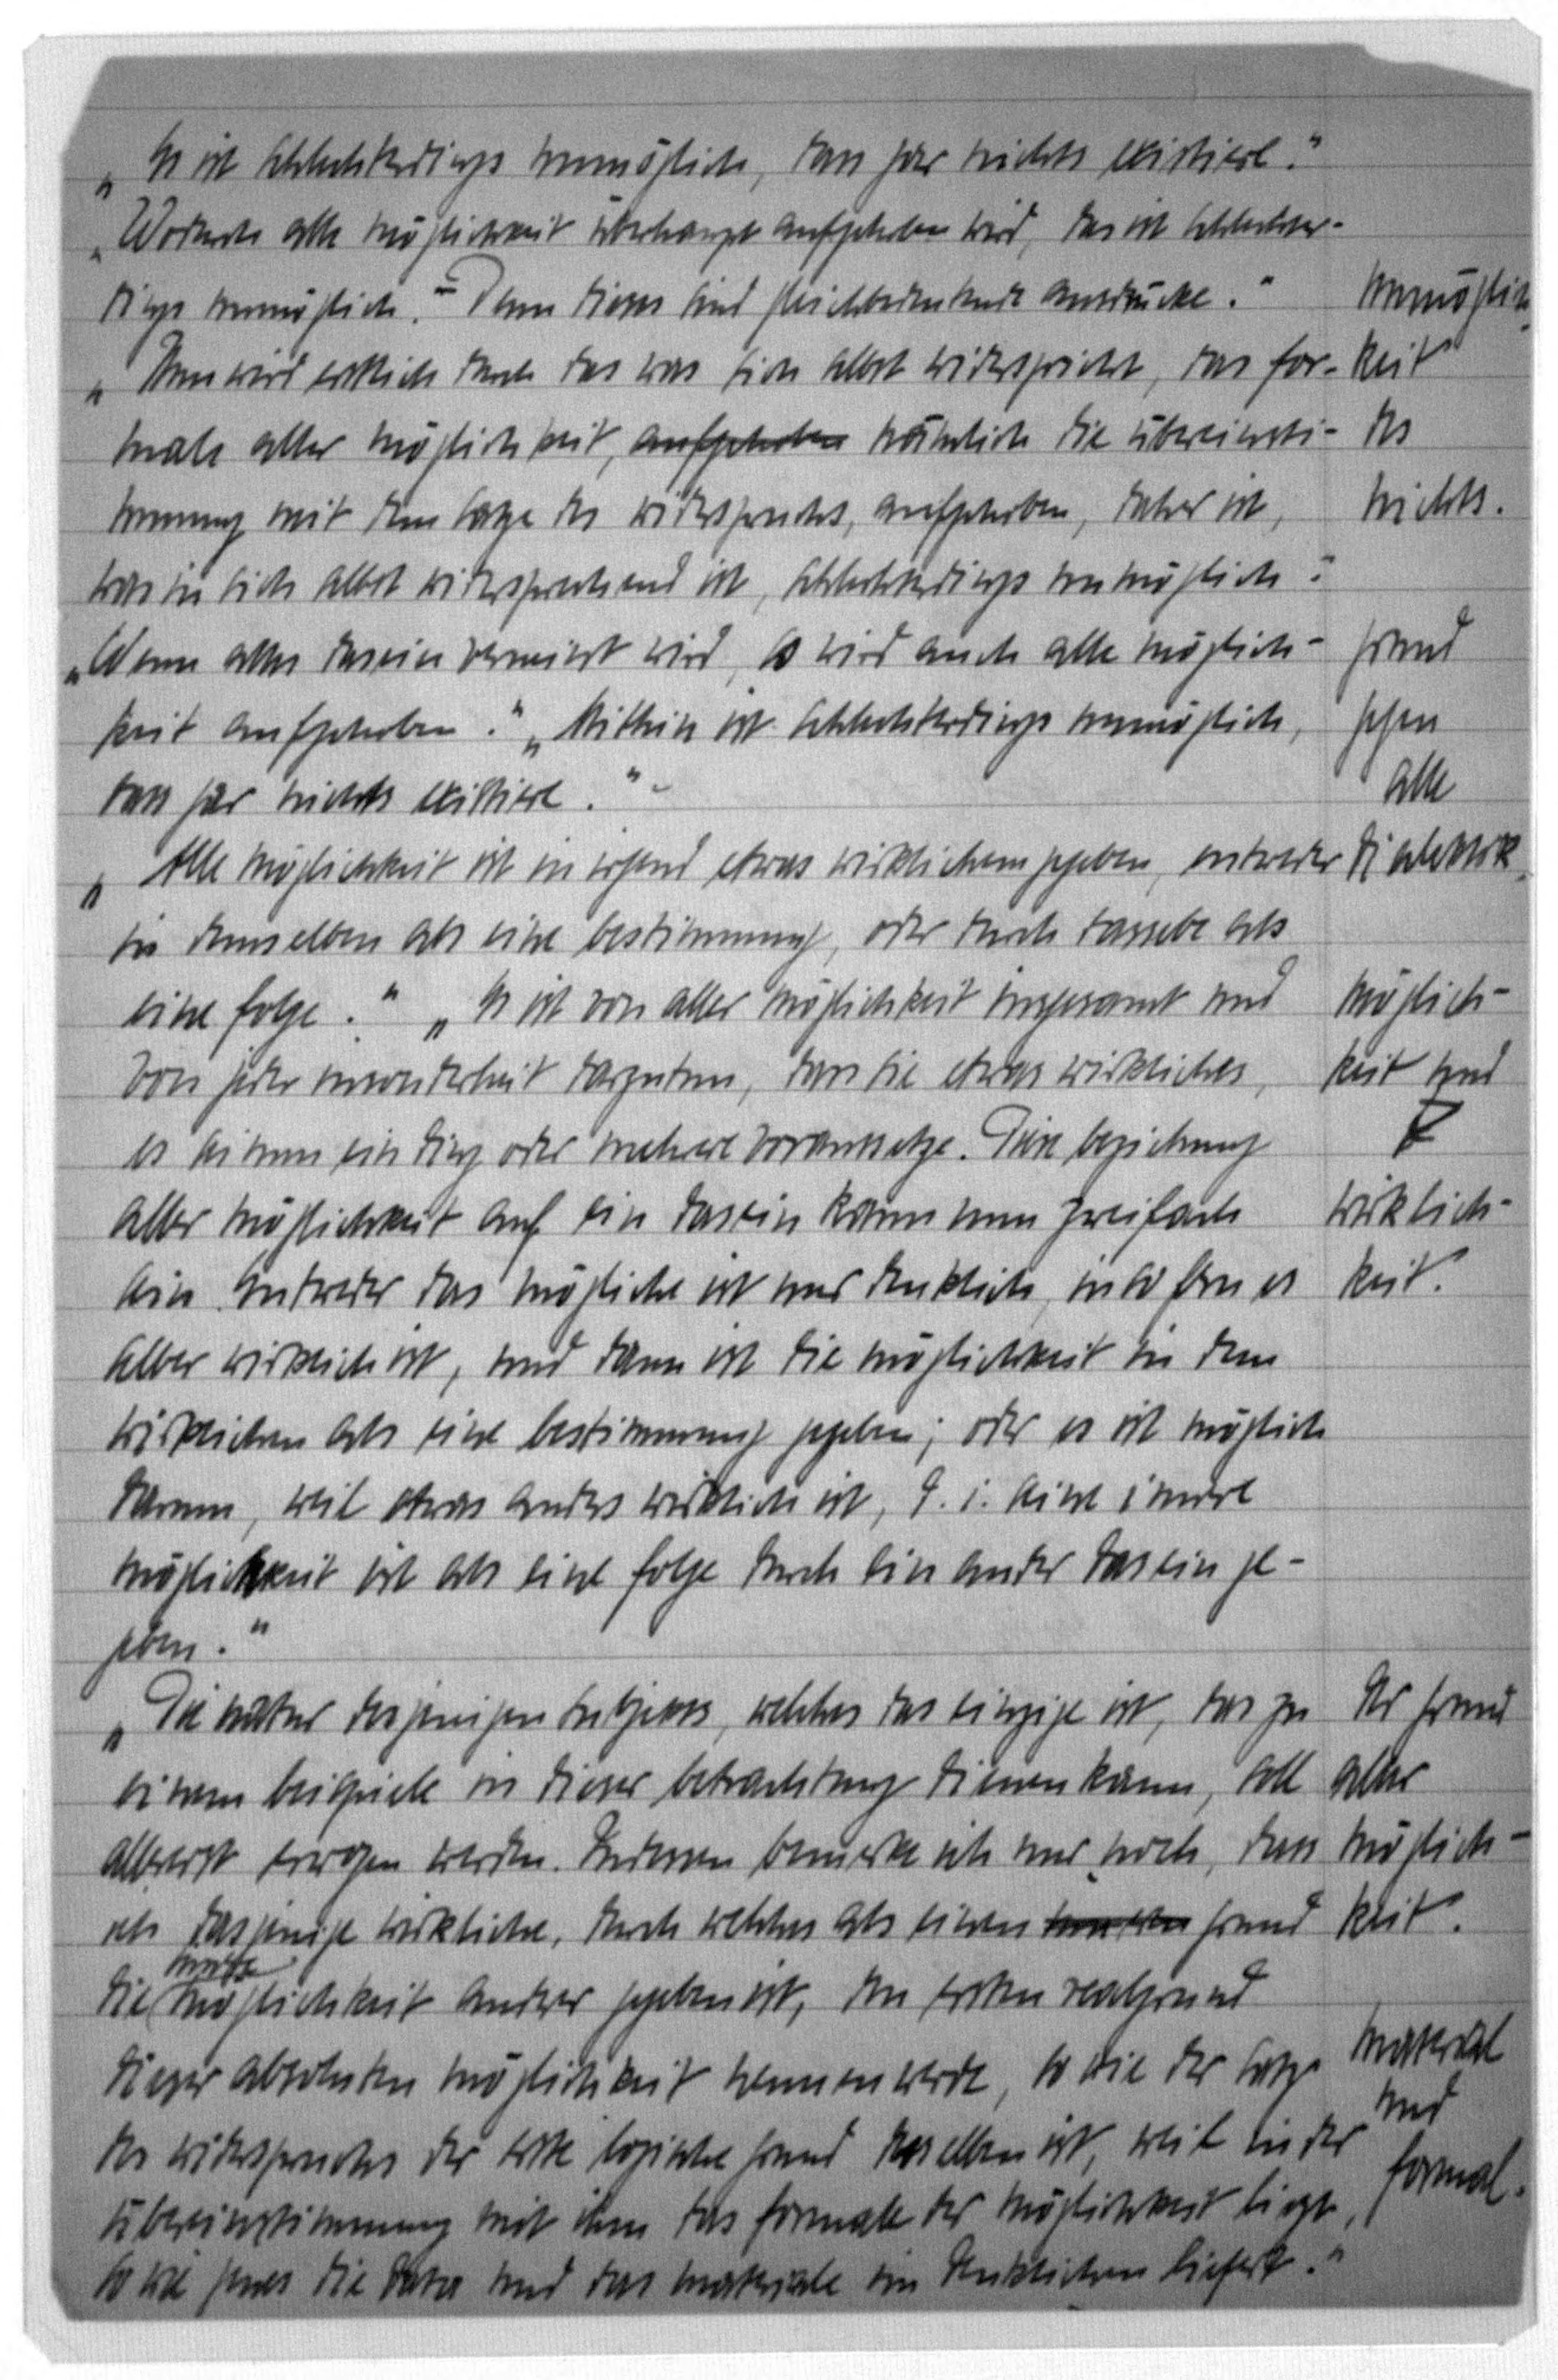 „Es ist schlechterdings unmöglich, dass gar nichts existiere."
„Wodurch alle möglichkeit überhaupt aufgehoben wird, das ist schlechter-
dings unmöglich." Denn dieses sind gleichbedeutende ausdrücke."
unmöglich-
„Nun wird erstlich durch das was sich selbst widerspricht, das for-
keit
male aller möglichkeit, aufgehoben nämlich die übereinsti-
des
mmung mit dem satze des widerspruchs, aufgehoben, daher ist,
nichts.
was in sich selbst widersprechend ist, schlechterdings unmöglich."
„Wenn alles dasein verneint wird, so wird auch alle möglich-
grund
keit aufgehoben." „Mithin ist schlechterdings unmöglich,
gegen
dass gar nichts existiere."
alle
„Alle möglichkeit ist in irgend etwas wirklichem gegeben, entweder
dialektik.
in demselben als eine bestimmung, oder durch dasselbe als
eine folge." „Es ist von aller möglichkeit insgesamt und
möglich-
von jeder insonderheit darzutun, dass sie etwas wirkliches,
keit und
es sei nun ein ding oder mehrere voraussetze. Diese beziehung
aller möglichkeit auf ein dasein kann nun zweifach
wirklich-
sein. Entweder das mögliche ist nur denklich, insofern es
keit.
selber wirklich ist, und dann ist die möglichkeit in dem
wirklichen als eine bestimmung gegeben; oder es ist möglich
darum, weil etwas anders wirklich ist, d. i. seine innere
möglichkeit ist als eine folge durch ein ander dasein ge-
geben."
„Die natur desjenigen subjekts, welches das einzige ist, das zu
der grund
einem beispiele in dieser betrachtung dienen kann, soll
aller
allererst erwogen werden. Indessen bemerke ich nur noch, dass
möglich-
ich dasjenige wirkliche, durch welches als einen grund
keit.
innere
die möglichkeit anderer gegeben ist, den ersten realgrund
dieser absoluten möglichkeit nennen werde, so wie der satz
material
des widerspruches der erste logische grund derselben ist, weil in der
und
übereinstimmung mit ihm das formale der möglichkeit liegt,
formal.
so wie jenes die data und das materiale im denklichen liefert."